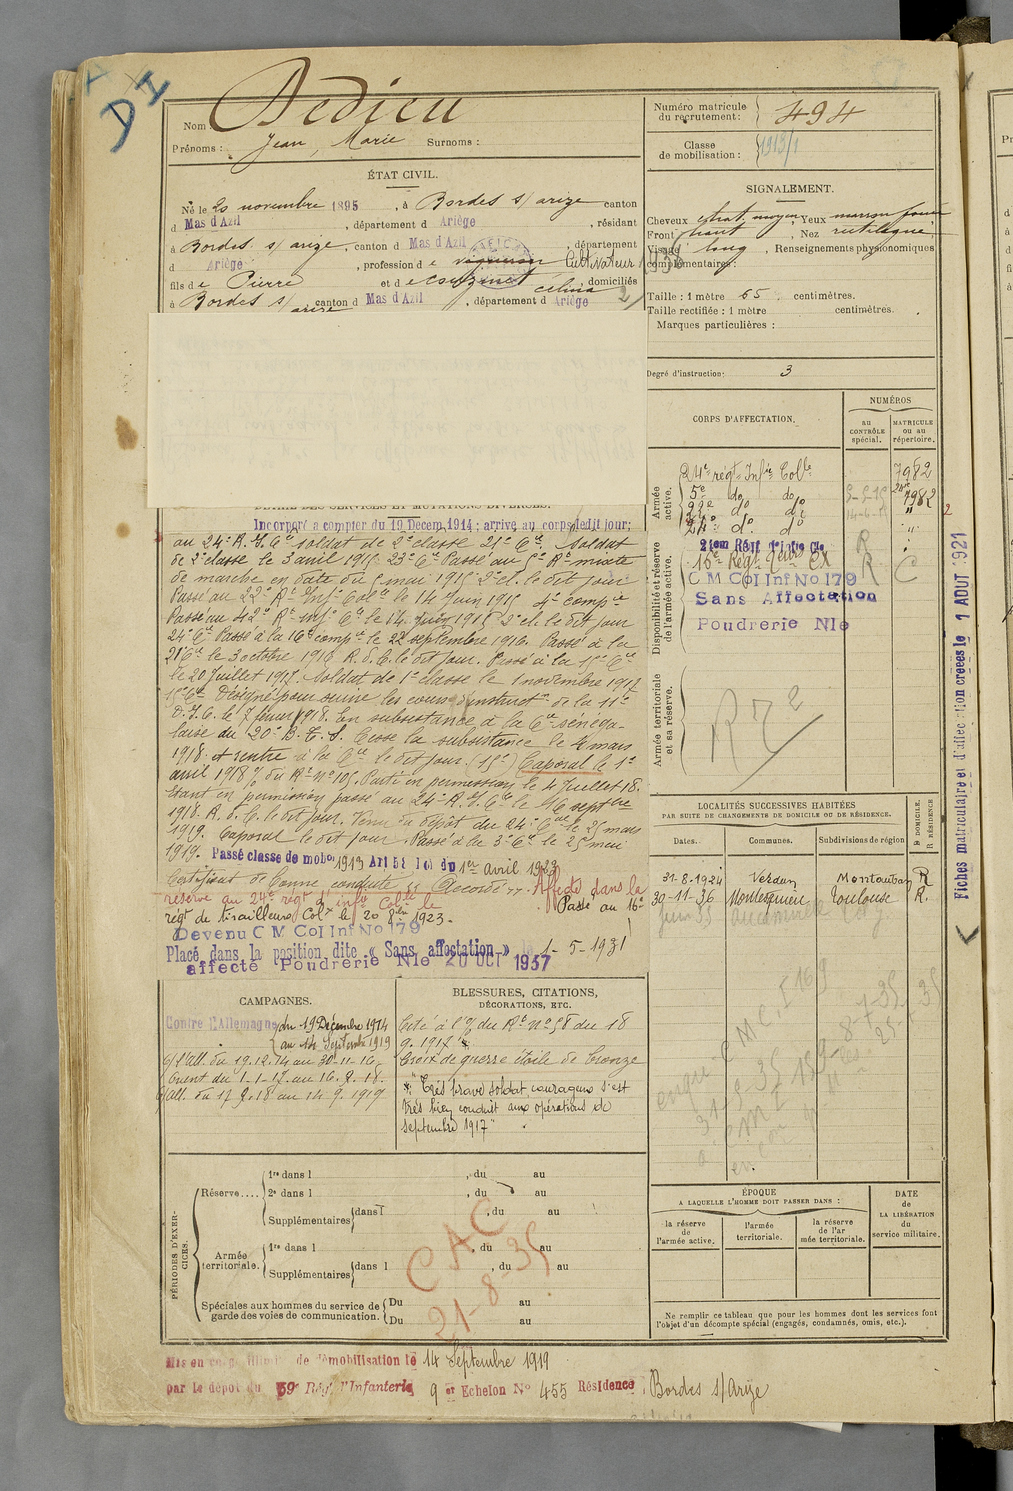 DI
Nom Dedieu
Prénoms : Jean, Marie Surnoms :
Numéro matricule du recrutement : 494
Classe de mobilisation : 1913/1
ÉTAT CIVIL.
Né le 20 novembre 1895, à Bordes s/ arize canton
d Mas d'Azil, département d Ariège, résidant
à Bordes s/ arize, canton d Mas d'Azil, département
d Ariège, profession de Cultivateur
fils de Pierre et de Couzinet célina, domiciliés
à Bordes s/ arize, canton d Mas d'Azil, département d Ariège
SIGNALEMENT.
Cheveux chat. moyen, Yeux marron foncé
Front haut, Nez rectiligne
Visage long, Renseignements physionomiques
complémentaires :
Taille : 1 mètre 65 centimètres.
Taille rectifiée : 1 mètre centimètres.
Marques particulières :
Degré d'instruction: 3
CORPS D'AFFECTATION.
NUMÉROS
au CONTRÔLE spécial.
MATRICULE ou au répertoire.
Armée active.
24e régt Infie Colle 7982
5e do do
22e do do
42e do do
24e do do
Disponibilité et réserve de l'armée active.
16e Régt
C M Col Inf No 179
Sans Affectation
Poudrerie Nle
R
R C
Armée territoriale et sa réserve.
DÉTAIL DES SERVICES ET MUTATIONS DIVERSES.
Incorporé a compter du 19 Decem. 1914 ; arrive au corps ledit jour;
au 24e R. I. Cle soldat de 2e classe 21e Cie. Soldat
de 2e classe le 3 avril 1915 23e Cie Passé au 5e Rt mixte
de marche en date du 5 mai 1915 2e cl. le dit jour
Passé au 22e Rt Infie Colle le 14 Juin 1915 4e compie
Passé au 42e Rt Inf. Cle le 14 juin 1915 2e cl. le dit jour
24e Cie Passé à la 16e compie le 22 septembre 1916. Passé à la
21e Cie le 3 octobre 1916 R. d. C. le dit jour. Passé à la 15e Cie
le 20 Juillet 1917. Soldat de 1e classe le 1 novembre 1917
Désigné pour suivre les cours d'instruct. de la 11e
D. I. C. le 7 février 1918. En subsistance à la Cie Sénéga-
laise du 20e B. T. S. Cesse la subsistance le 4 mars
1918 et rentre à la Cie le dit jour. (15e) Caporal le 1er
avril 1918 % du Rt No 105. Parti en permission le 4 Juillet 18.
Etant en permission passé au 24e R. I. Cle le 16 septbre
1918. R. d. C. le dit jour. Venu du dépôt du 24e Cal le 25 mars
1919. Caporal le dit jour. Passé à la 3e Cie le 25 mai
1919. Passé classe de mobon 1913 Art 58 loi du 1er Avril 1923
Certificat de bonne conduite "Accordé". Affecté dans la
réserve au 24e régt d'infie Colle le Passé au 16e
régt de tirailleurs Colx le 20 1923.
Devenu C M Col Inf No 179
Placé dans la position dite « Sans affectation » le 1-5-1931
affecté Poudrerie Nle 20 OCT 1937
Fiches matriculaire et d'affectation créées le 1 AOUT 1921
LOCALITÉS SUCCESSIVES HABITÉES
PAR SUITE DE CHANGEMENTS DE DOMICILE OU DE RÉSIDENCE.
Dates. Communes. Subdivisions de région D DOMICILE. R RÉSIDENCE
31-8-1924 Verdun Montauban R
30-11-26 Montesquieu Toulouse R.
CAMPAGNES.
Contre l'Allemagne du 19 Décembre 1914
au 14 Septembre 1919
c/ l'All. du 19.12.14 au 30-11-16.
Orient du 1-1-17. au 16.9.18.
c/ All. du 17.9.18 au 14.9.1919
BLESSURES, CITATIONS,
DÉCORATIONS, ETC.
Cité à l'% du Rt No 58 du 18
9. 1917 *
Croix de guerre étoile de bronze
* "Très brave soldat, courageux s'est
très bien conduit aux opérations de
septembre 1917"
PÉRIODES D'EXERCICES.
Réserve.... 1re dans l , du au
2e dans l , du au
Supplémentaires dans l , du au
Armée territoriale. 1re dans l , du au
Supplémentaires dans l , du au
Spéciales aux hommes du service de garde des voies de communication. Du au
Du au
CAC
21-8-35
ÉPOQUE
A LAQUELLE L'HOMME DOIT PASSER DANS :
la réserve de l'armée active.
l'armée territoriale.
la réserve de l'armée territoriale.
DATE de LA LIBÉRATION du service militaire.
Ne remplir ce tableau que pour les hommes dont les services font
l'objet d'un décompte spécial (engagés, condamnés, omis, etc.).
Mis en congé illimité de démobilisation le 14 Septembre 1919
par le dépôt du 59e Rég. d'Infanterie 9 er Echelon No 455 Résidence : Bordes s/ Arize